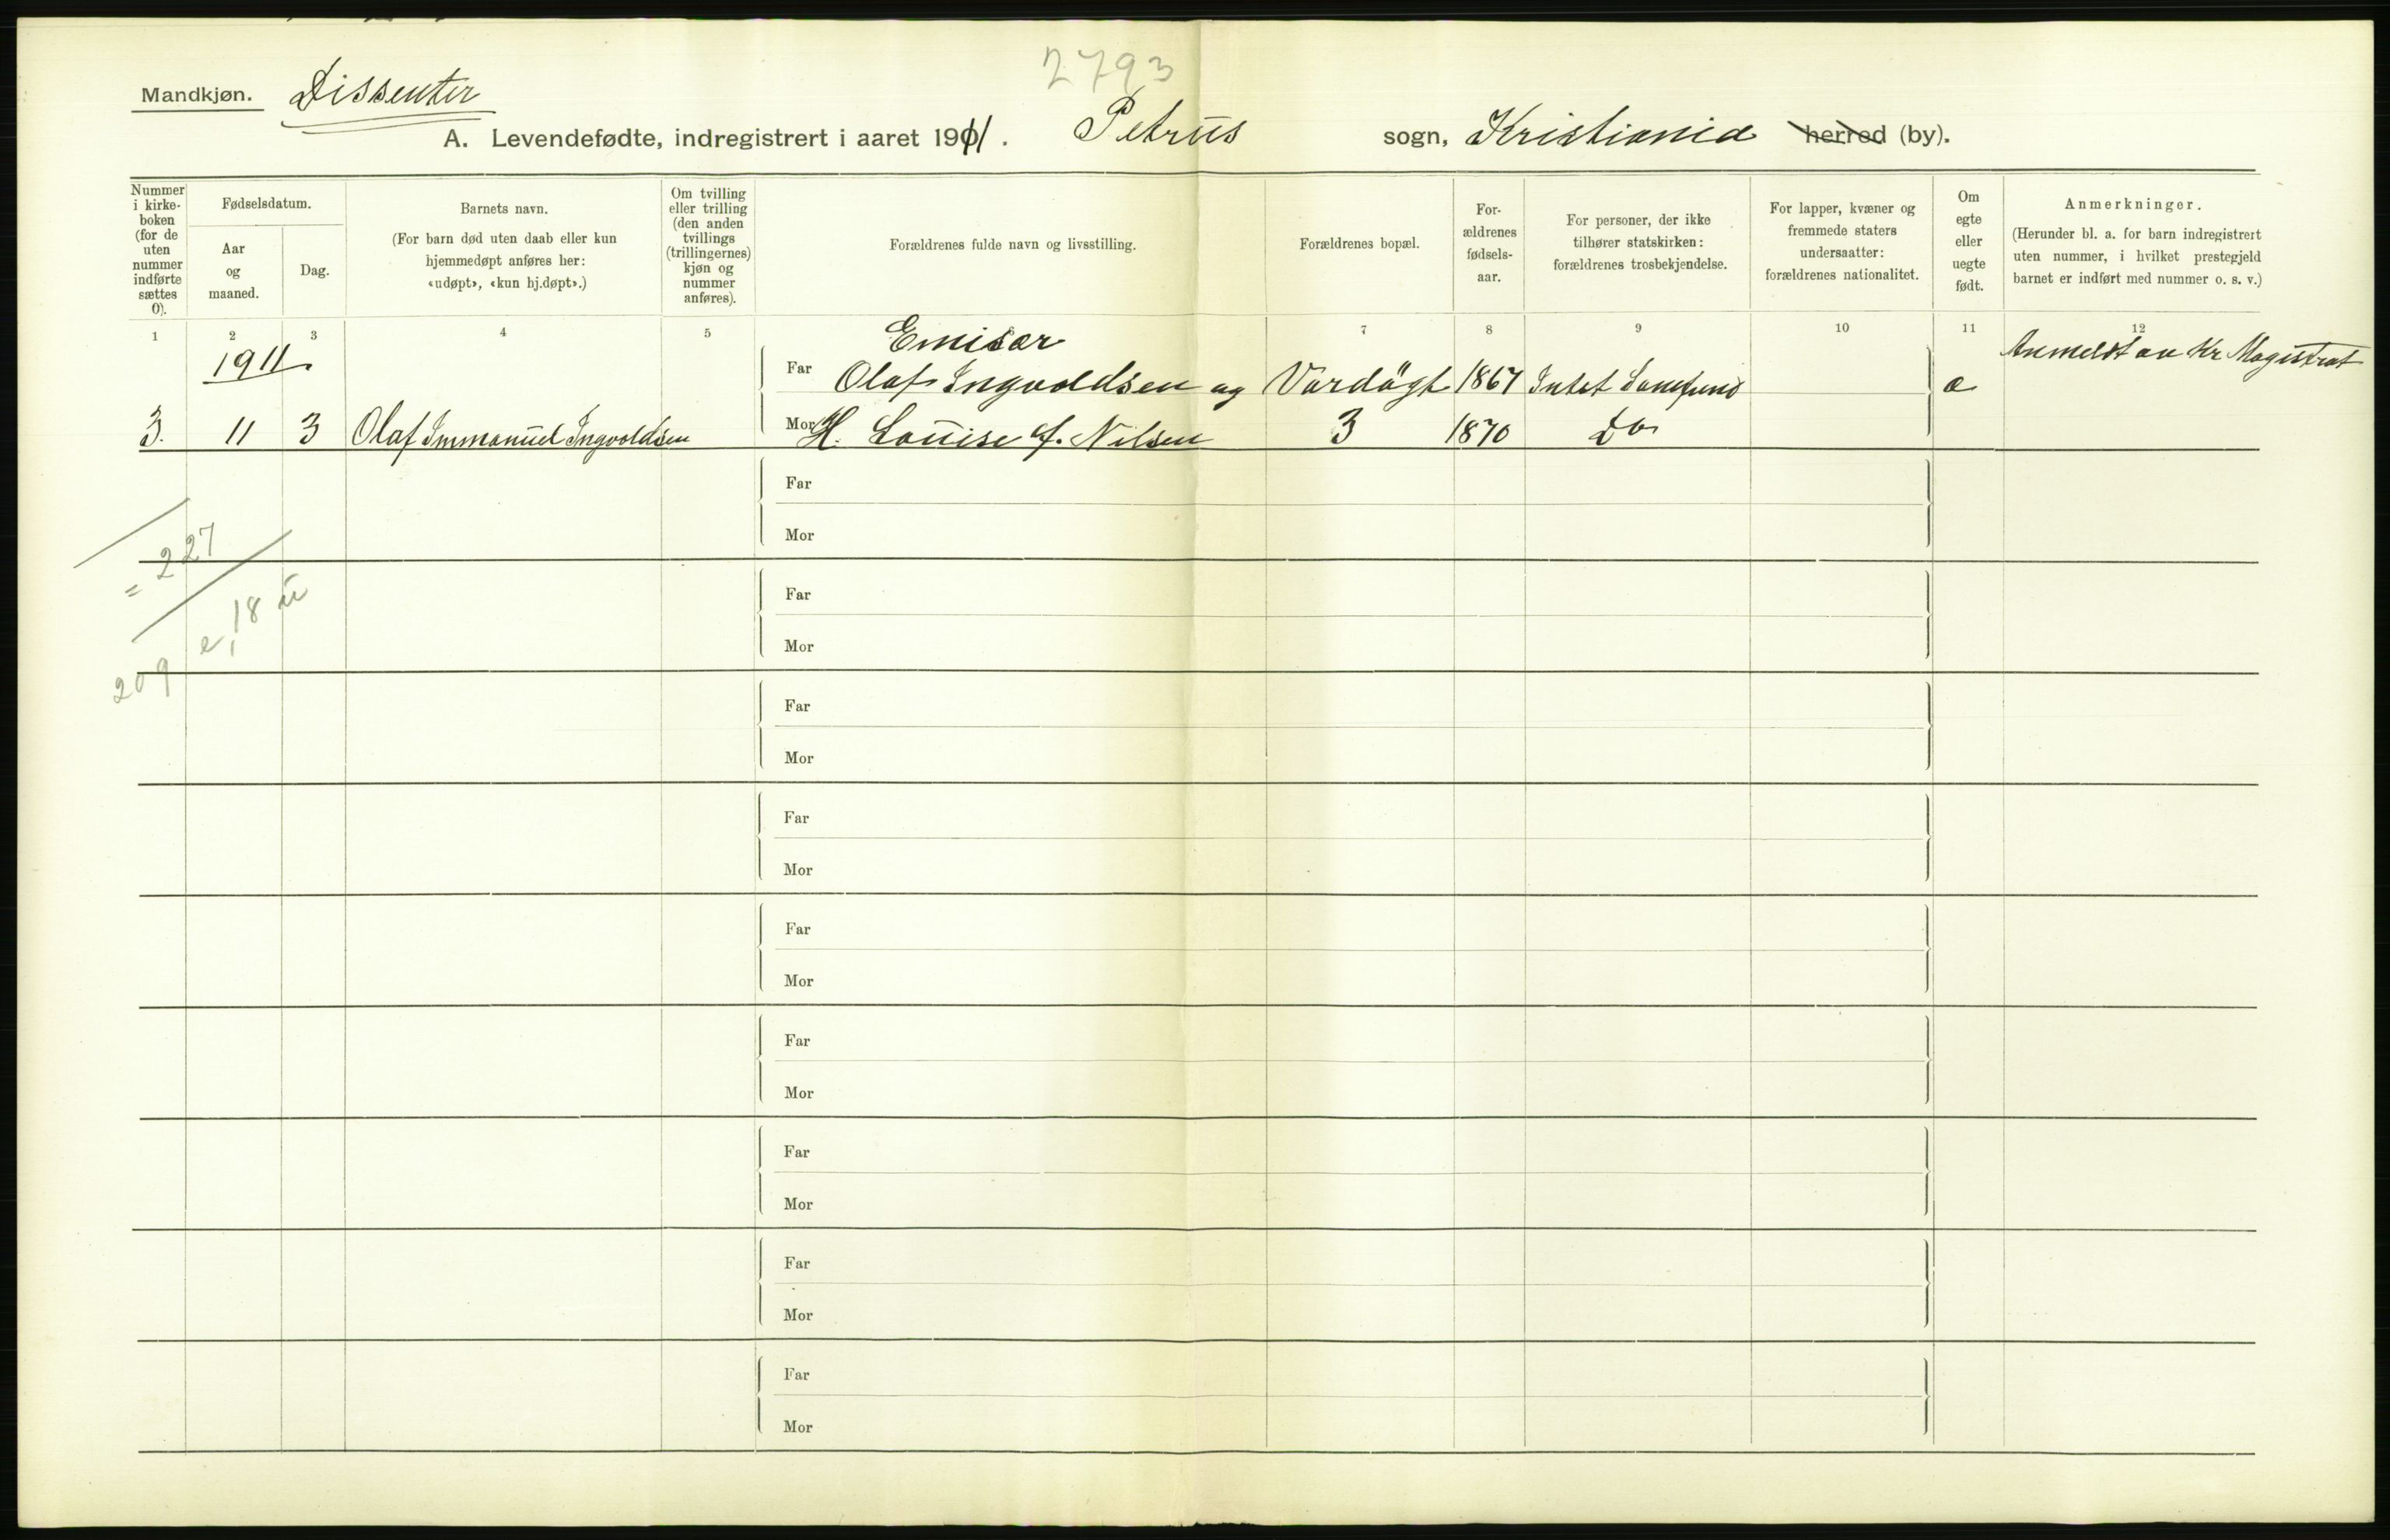 2793
Mandkjøn. Dissenter
A. Levendefødte, indregistrert i aaret 1911. Petrus sogn, Kristiania herred (by).
Nummer i kirke-boken (for de uten nummer indførte sættes 0).
Fødselsdatum.
Aar og maaned.
Dag.
Barnets navn.
(For barn død uten daab eller kun hjemmedøpt anføres her: «udøpt», «kun hj.døpt».)
Om tvilling eller trilling (den anden tvillings (trillingernes) kjøn og nummer anføres).
Forældrenes fulde navn og livsstilling.
Forældrenes bopæl.
For-ældrenes fødsels-aar.
For personer, der ikke tilhører statskirken: forældrenes trosbekjendelse.
For lapper, kvæner og fremmede staters undersaatter: forældrenes nationalitet.
Om egte eller uegte født.
Anmerkninger.
(Herunder bl. a. for barn indregistrert uten nummer, i hvilket prestegjeld barnet er indført med nummer o. s. v.)
1 2 3 4 5 7 8 9 10 11 12
1911. Emisær Anmeldt av Kr Magistrat
Far Olaf Ingvoldsen og Vardågt 1867 Intet Samfund e
3. 11 3 Olaf Immanuel Ingvoldsen Mor H. Louise f. Nilsen 3 1870 Do
Far
Mor
= 227
Far
e, 18 u
Mor
209
Far
Mor
Far
Mor
Far
Mor
Far
Mor
Far
Mor
Far
Mor
Far
Mor